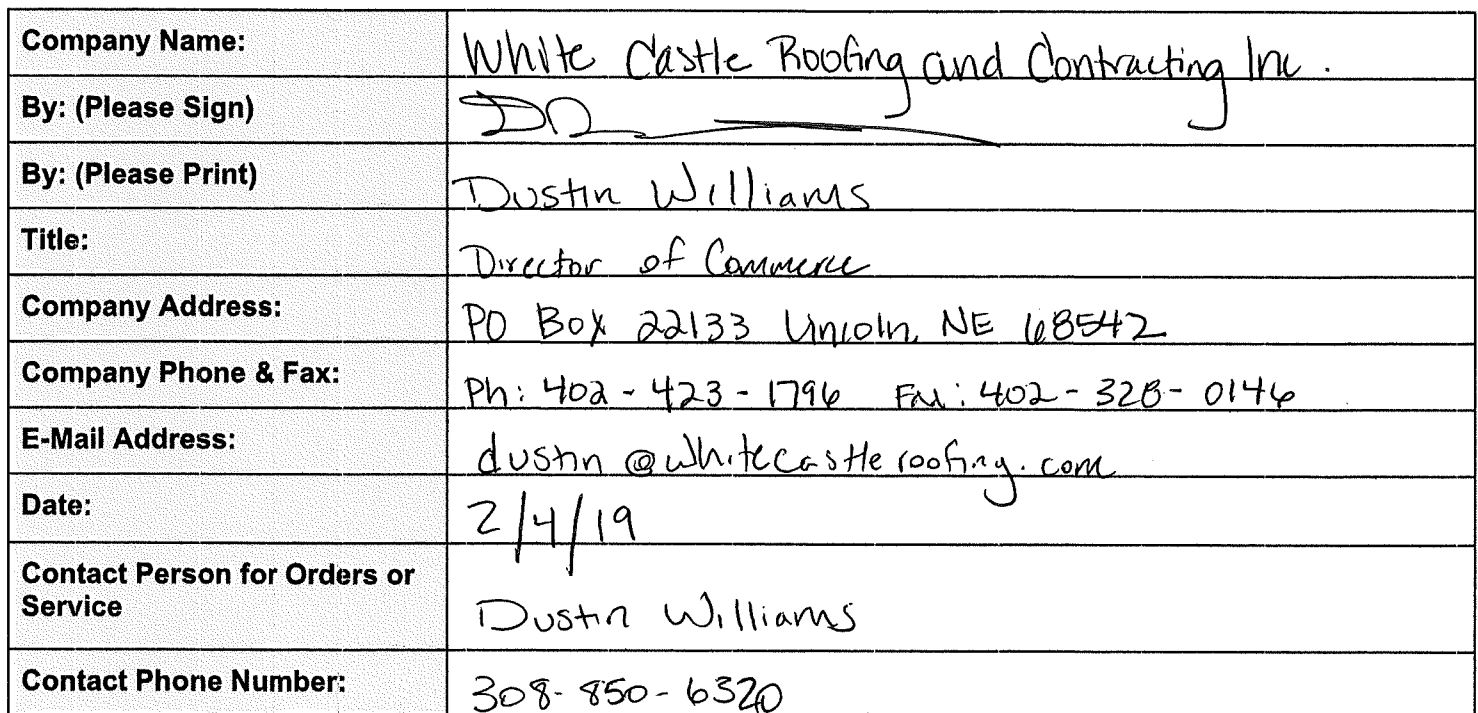 Company Name: White Castle Roofing and Contracting Inc.
By: (Please Sign)
By: (Please Print) Dustin Williams
Title: Director of Commerce
Company Address: PO Box 22133 Lincoln, NE 68542
Company Phone & Fax: Ph: 402-423-1796 Fax: 402-328-0146
E-Mail Address: dustin@whitecastleroofing.com
Date: 2/4/19
Contact Person for Orders or
Service Dustin Williams
Contact Phone Number: 308-850-6320